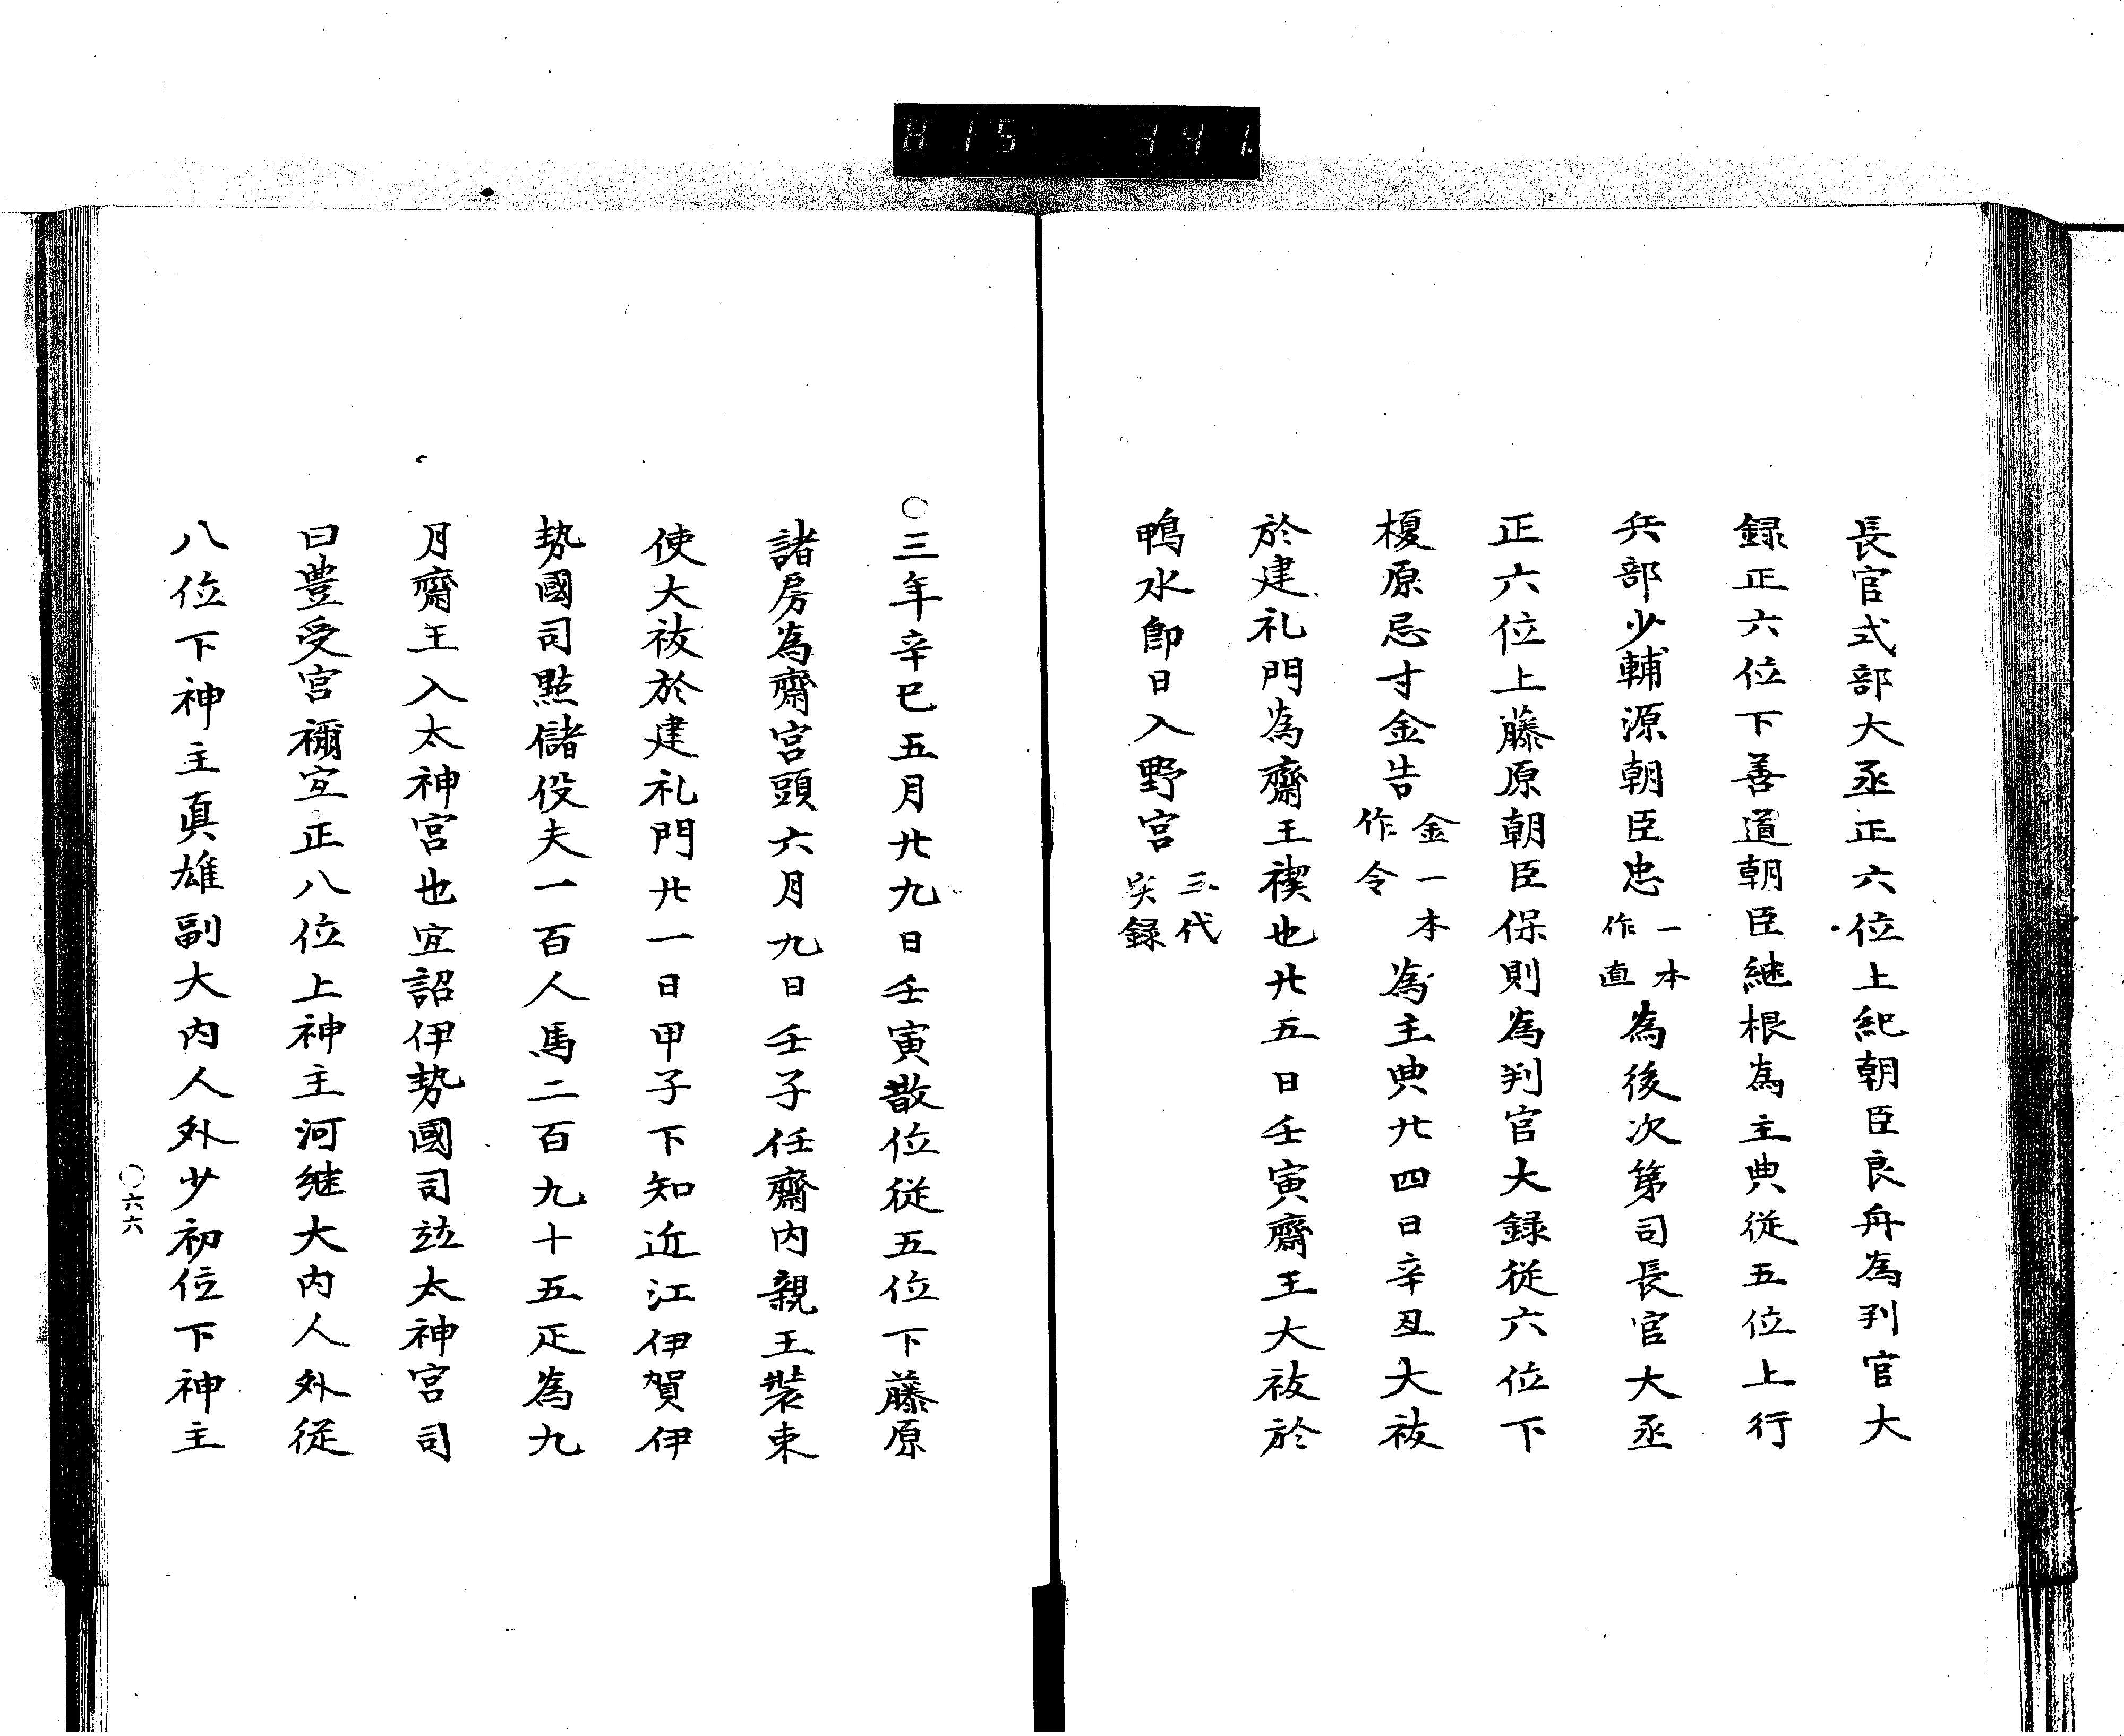 815 341
長官式部大丞正六位上紀朝臣良舟為判官大
録正六位下善道朝臣継根為主典従五位上行
兵部少輔源朝臣忠一本作直為後次第司長官大丞
正六位上藤原朝臣保則為判官大録従六位下
榎原忌寸金告金一本作令為主典廿四日辛丑大祓
於建礼門為齋王禊也廿五日壬寅齋王大祓於
鴨水即日入野宮三代実録
○三年辛巳五月廿九日壬寅散位従五位下藤原
諸房為齋宮頭六月九日壬子任齋内親王裝束
使大祓於建礼門廿一日甲子下知近江伊賀伊
勢國司點儲役夫一百人馬二百九十五疋為九
月齋王入太神宮也宜詔伊勢國司竝太神宮司
曰豊受宮禰宜正八位上神主河継大内人外従
八位下神主真雄副大内人外少初位下神主
○六六